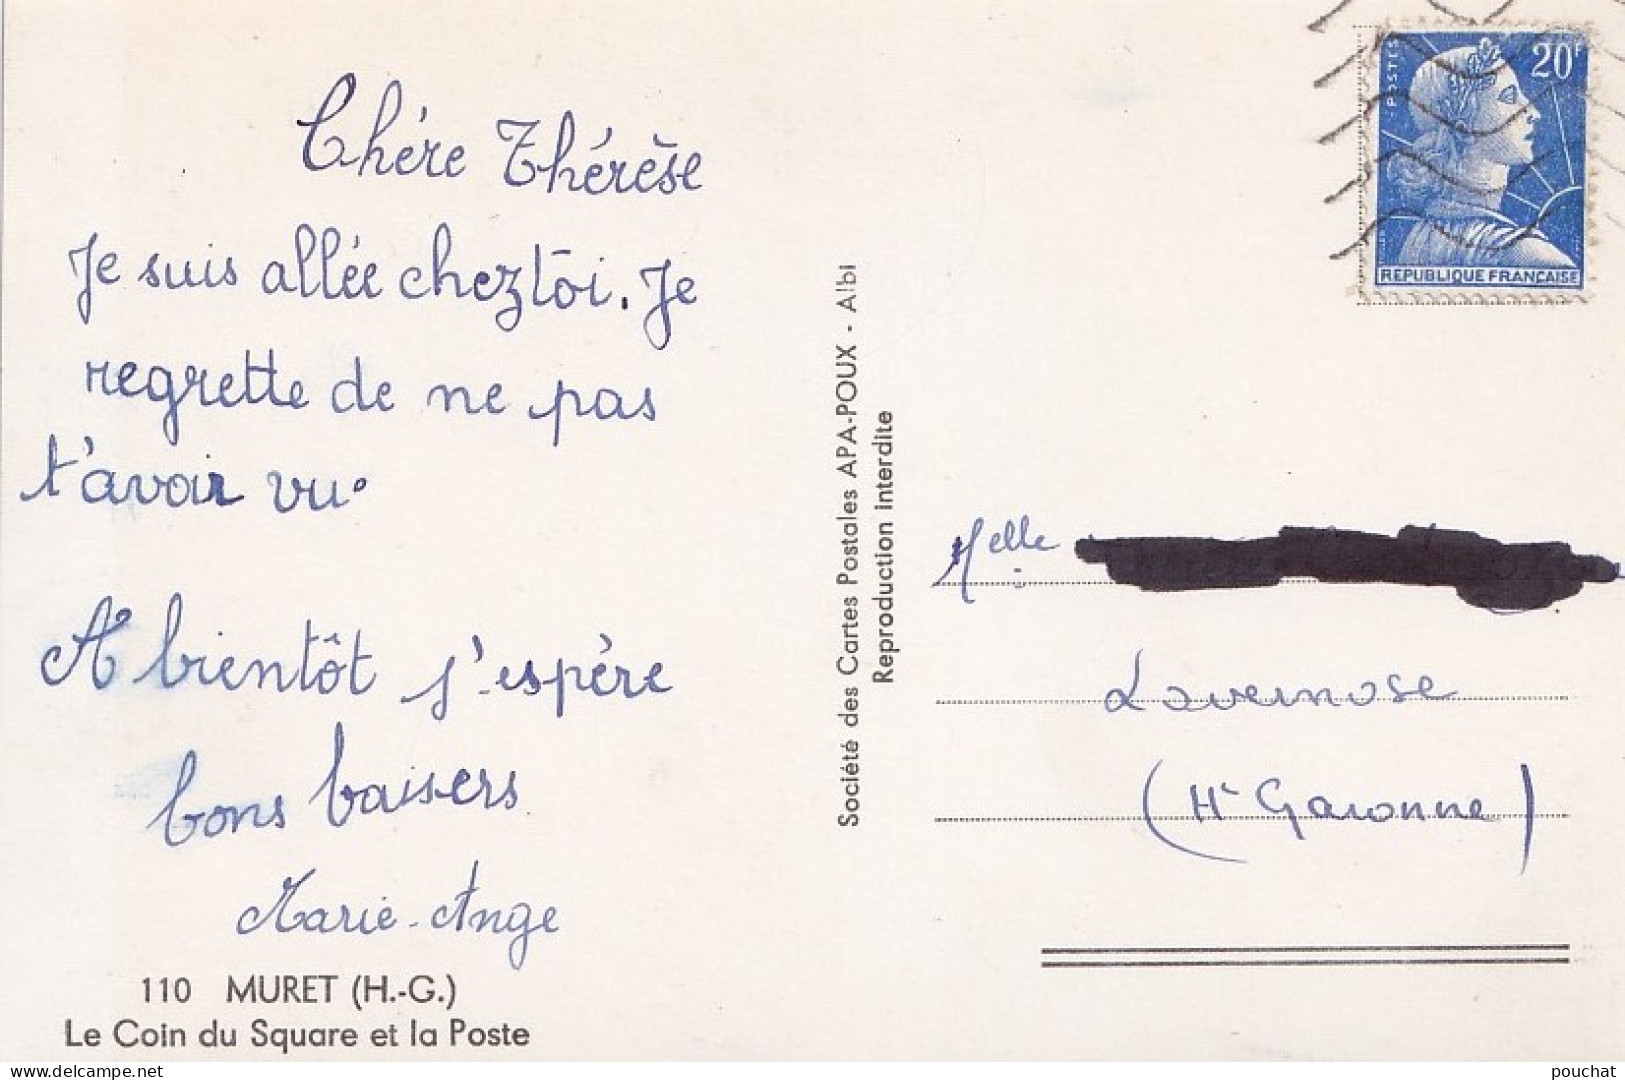 Chère Thérèse
Je suis allée chez toi. Je
regrette de ne pas
t'avoir vu.
A bientôt j'espère
bons baisers
Marie-Ange
110 MURET (H.-G.)
Le Coin du Square et la Poste
Société des Cartes Postales APA-POUX - Albi
Reproduction interdite
POSTES
20F
REPUBLIQUE FRANÇAISE
Melle
Lavernose
(Hte Garonne)
www.delcampe.net
pouchat